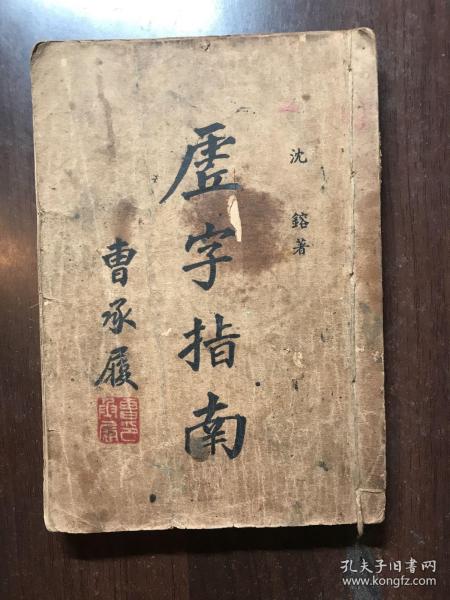 沈鎔著
虚字指南
曹承履
孔夫子旧书网
www.kongfz.com